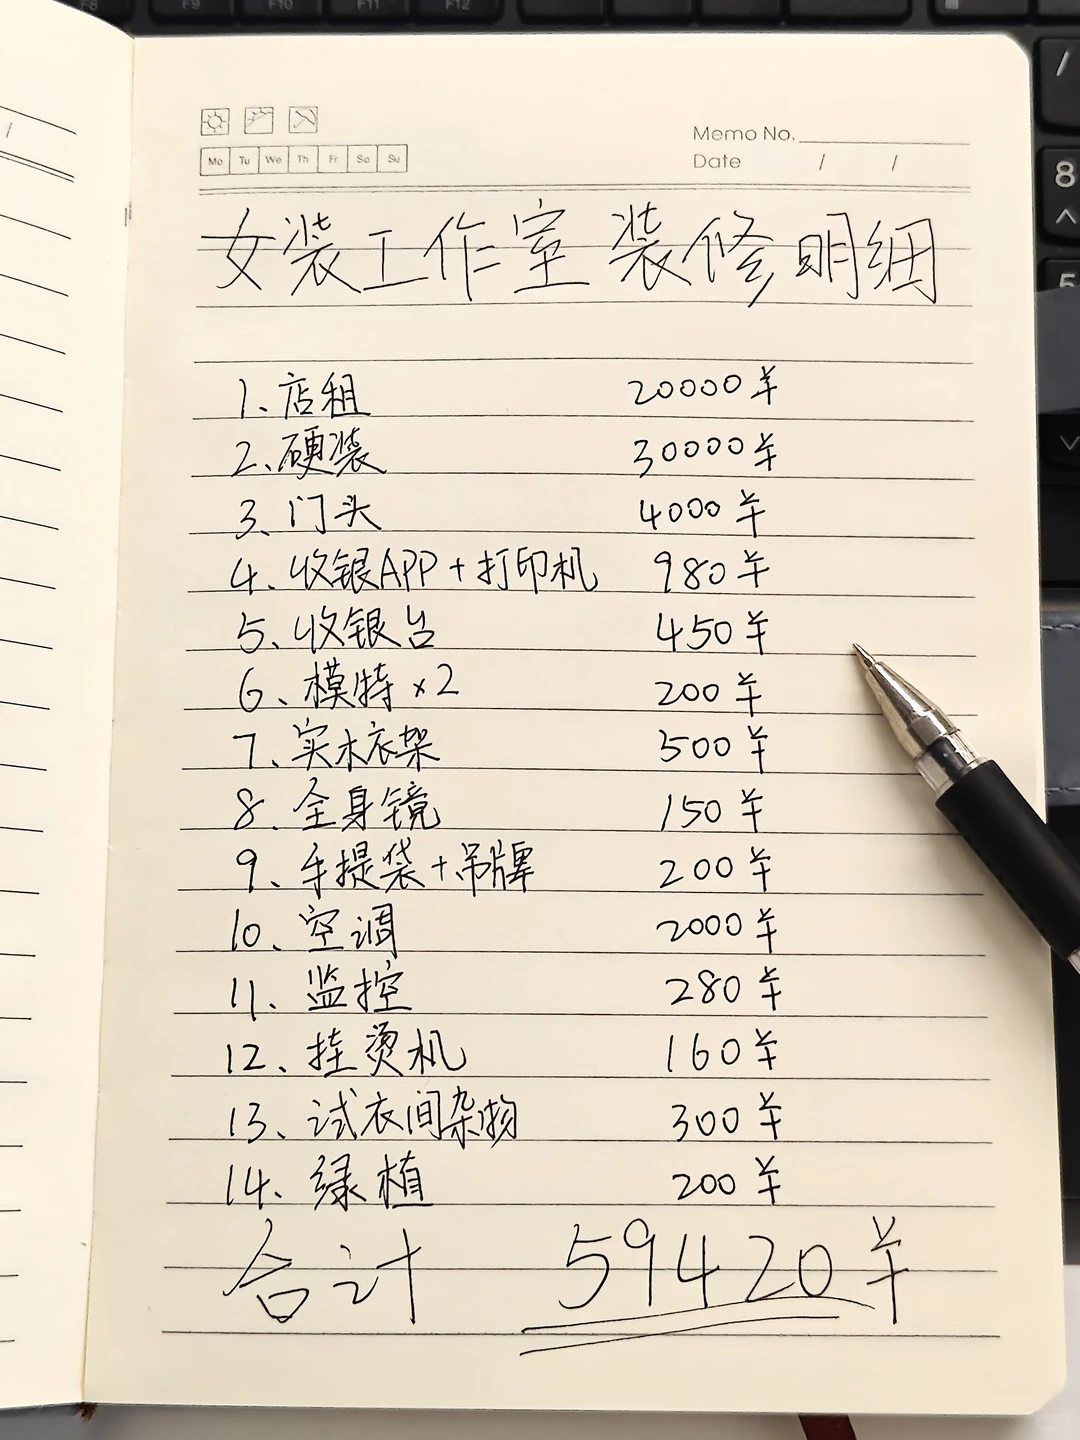 F8 F9 F10 F11 F12
Mo Tu We Th Fr Sa Su
Memo No.
Date / /
女装工作室 装修明细
1、店租 20000羊
2、硬装 30000羊
3、门头 4000羊
4、收银APP+打印机 980羊
5、收银台 450羊
6、模特×2 200羊
7、实木衣架 500羊
8、全身镜 150羊
9、手提袋+吊牌 200羊
10、空调 2000羊
11、监控 280羊
12、挂烫机 160羊
13、试衣间杂物 300羊
14、绿植 200羊
合计 59420羊
/
8
5